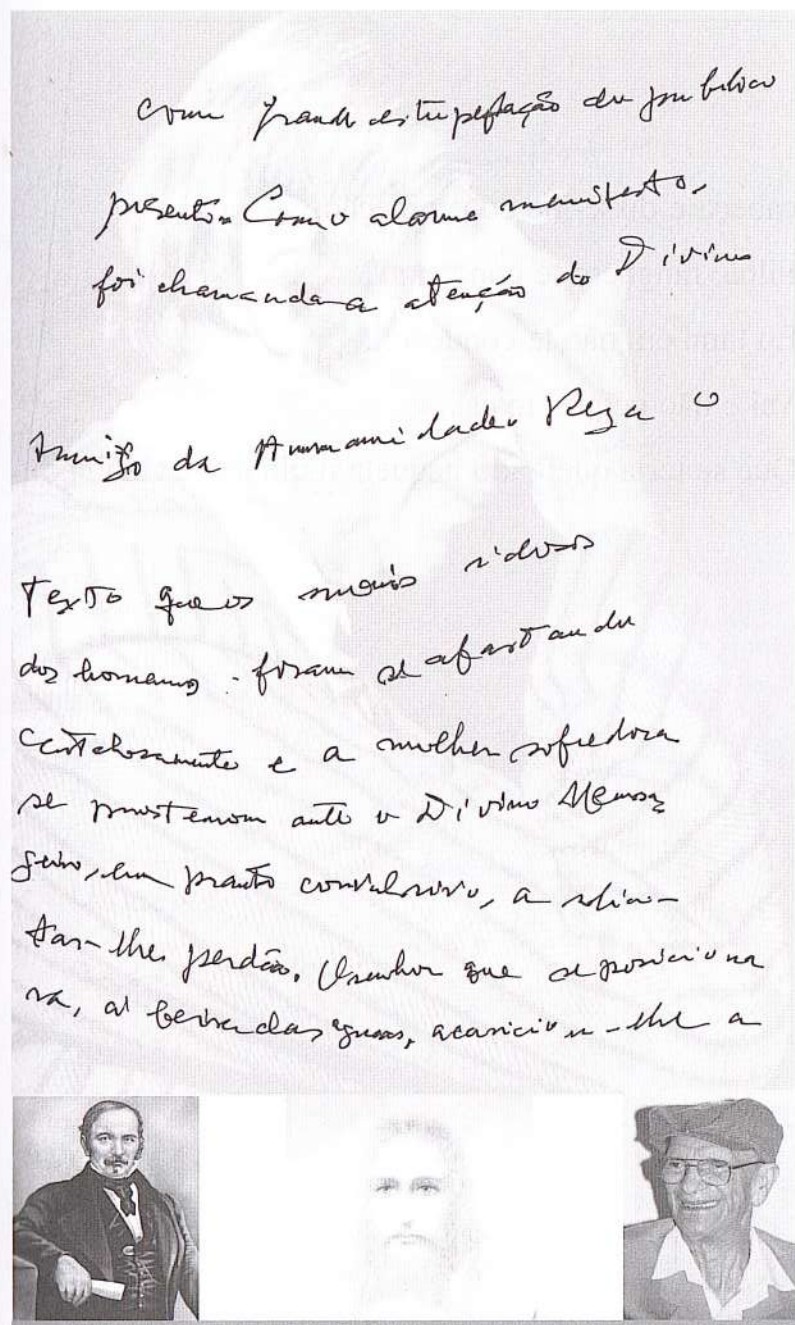 Com grande estupefação do publico
presente. Com o alarme manifesto,
foi chamanda a atenção do Divino
Amigo da Humanidade. Reza o
Texto que os mais idosos
dos homens foram se afastando
cautelosamente e a mulher sofredora
se prosternou ante o Divino Mensa
geiro, em pranto convulsivo, a solici-
tar-lhe perdão. O Senhor que se posiciona
ra, à beira das águas, acariciou-lhe a